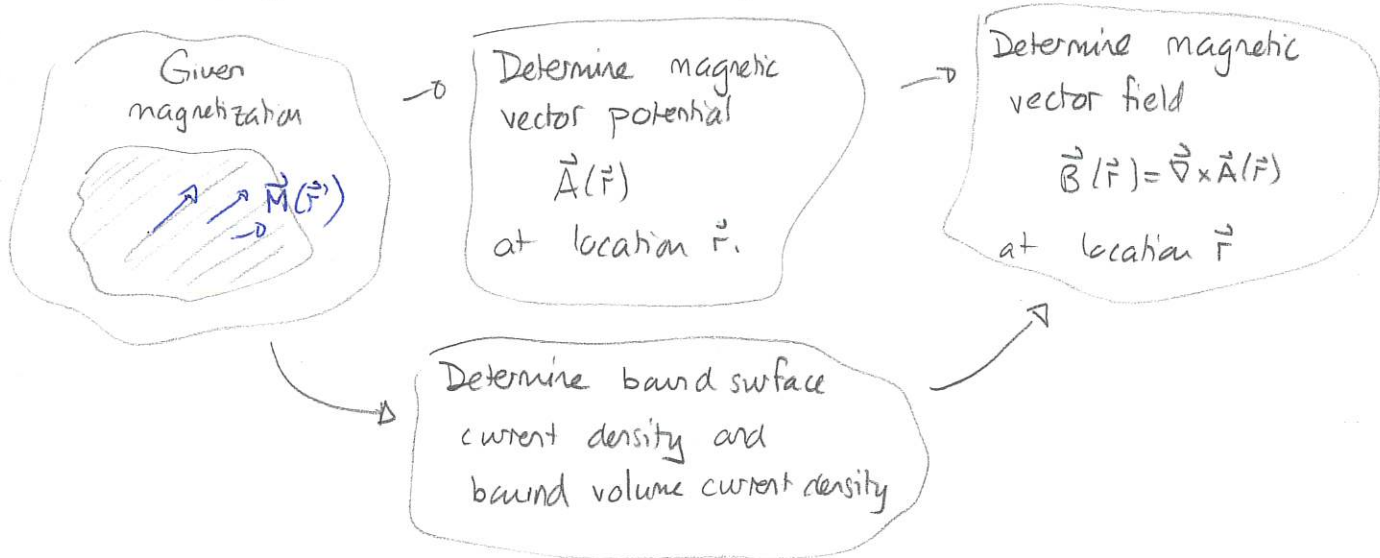 Given
magnetization
M⃗(r⃗')
Determine magnetic
vector potential
A⃗(r⃗)
at location r⃗.
Determine magnetic
vector field
B⃗(r⃗) = ∇⃗ × A⃗(r⃗)
at location r⃗
Determine bound surface
current density and
bound volume current density